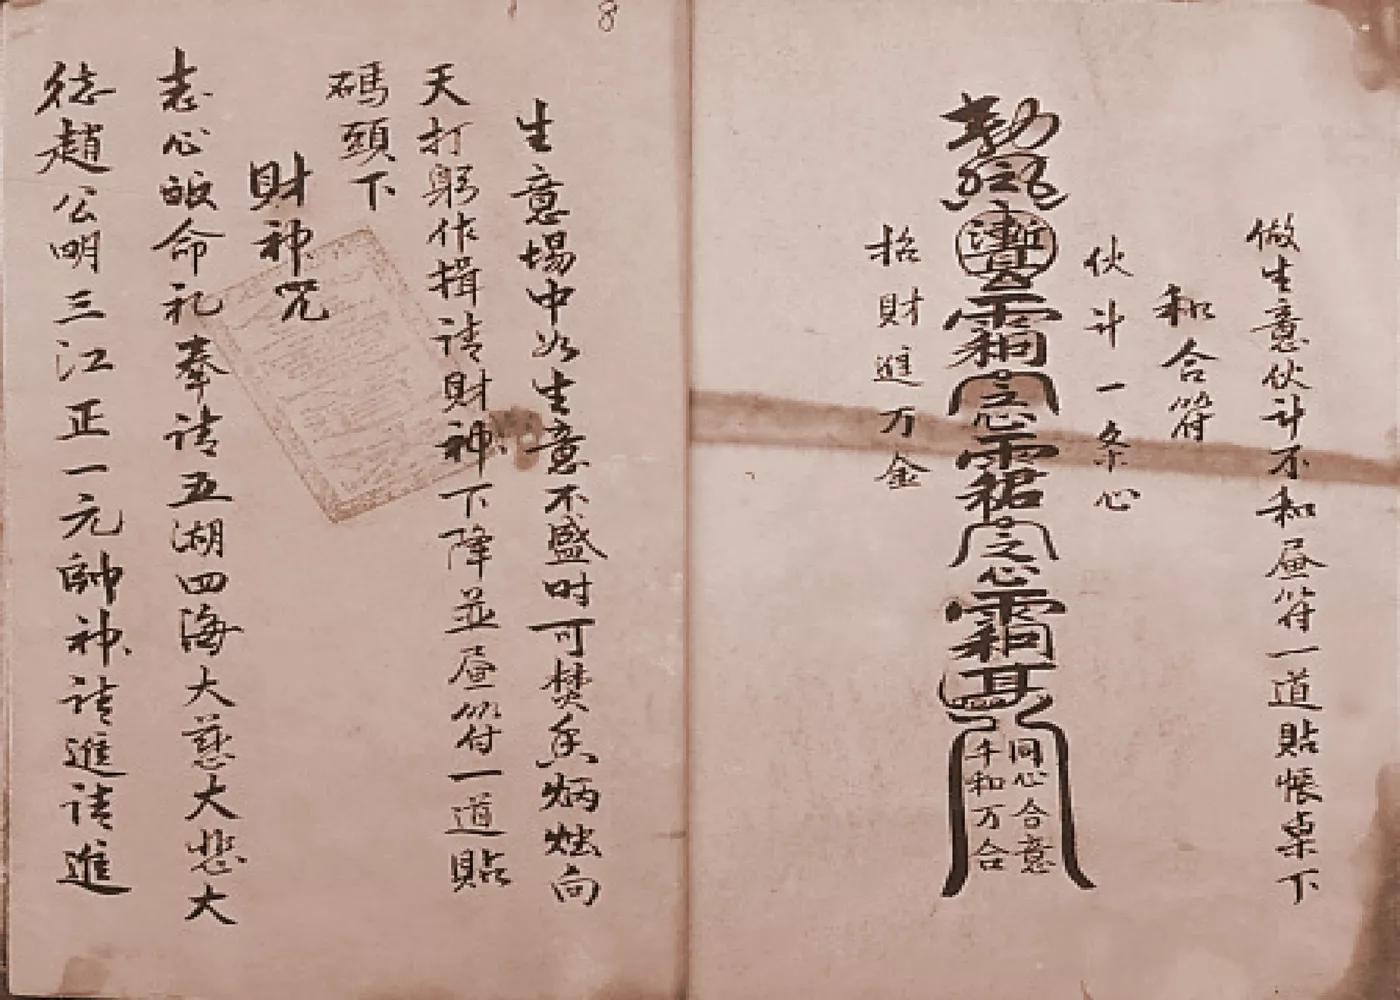 8
做生意伙计不和昼符一道貼帳桌下
和合符
伙计一条心
勅
同心合意
千和万合
招財進万金
生意場中如生意不盛时可焚香炳烛向
天打躬作揖请財神下降並昼符一道貼
碼頭下
財神咒
志心皈命礼奉请五湖四海大慈大悲大
徳趙公明三江正一元帥神请進请進